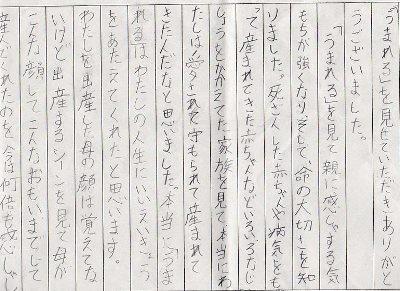 「うまれる」を見せていただきありがと
うございました。
「うまれる」を見て親に感しゃする気
もちが強くなりそして、命の大切さを知
りました。死ざんした赤ちゃんや病気をも
って産まれてきた赤ちゃんなどいろいろなじ
じょうをかかえてた家族を見て本当にわ
たしは愛されて守もられて産まれて
きたんだなと思いました。本当に「うま
れる」はわたしの人生にいいえいきょう
をあたえてくれたと思います。
わたしを出産した母の顔は覚えてな
いけど出産するシーンを見て母が
こんな顔してこんなおもいまでして
産んでくれたのを、今は何倍も感しゃし